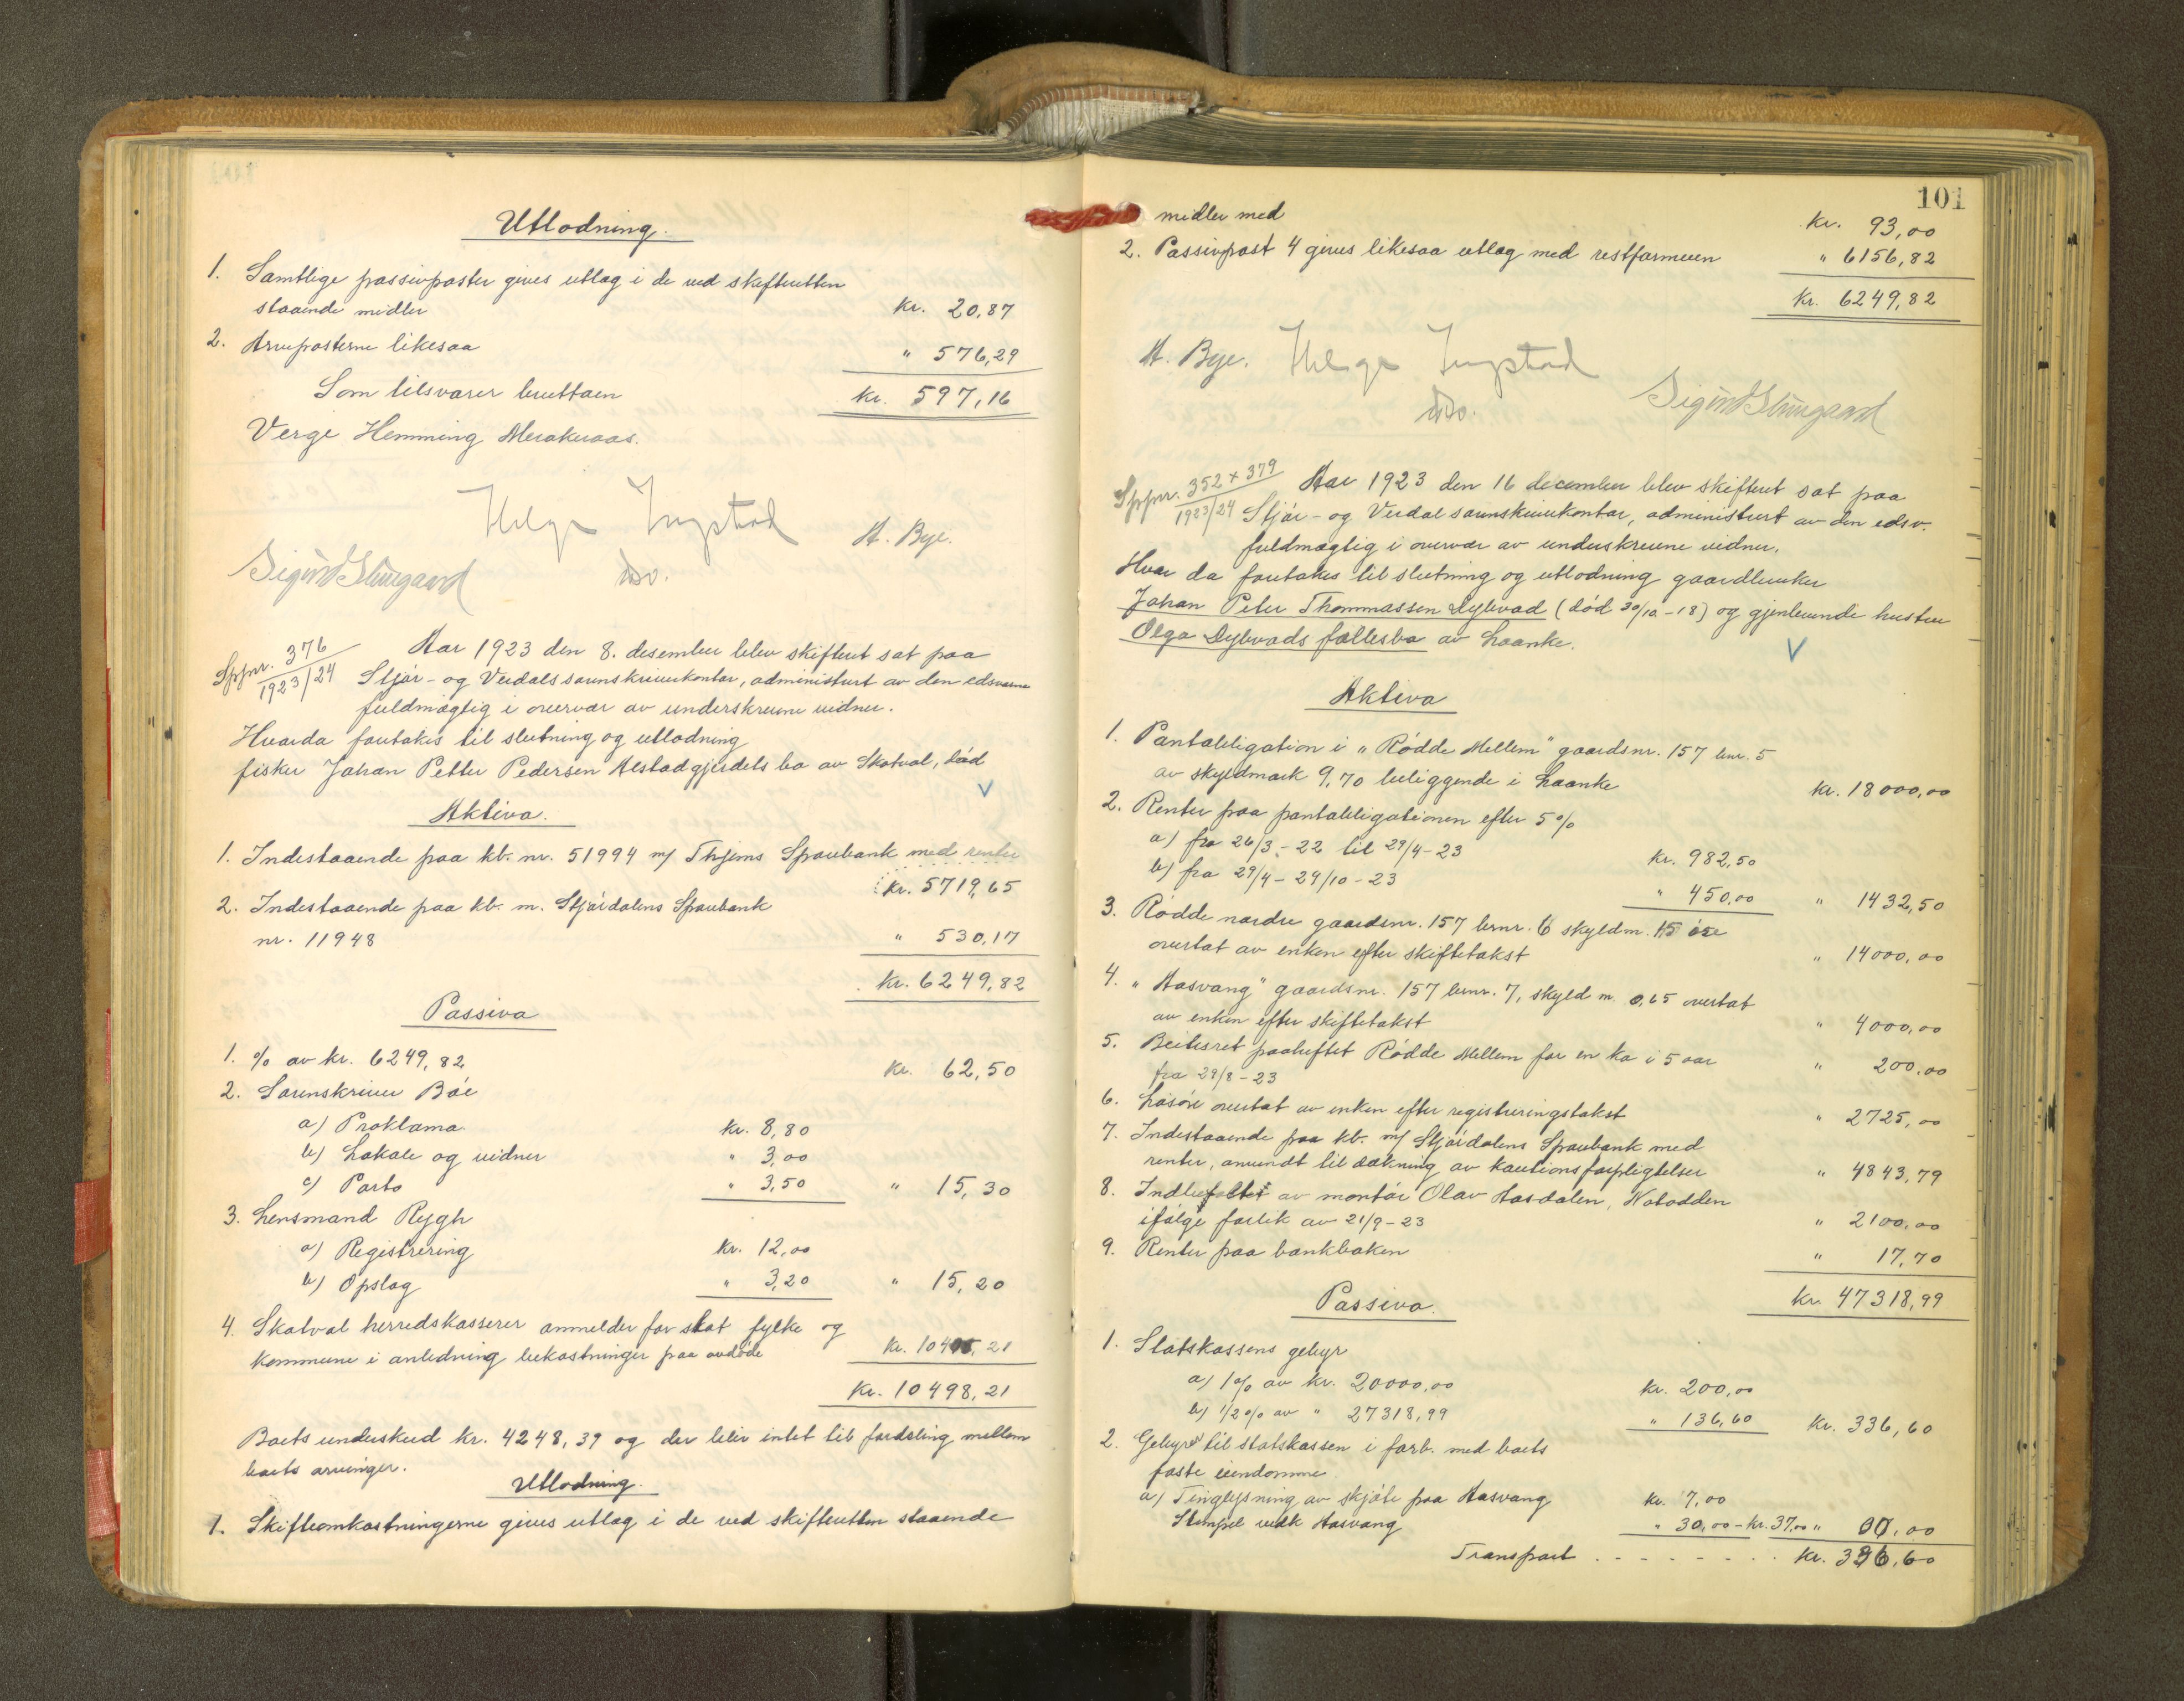 Utlodning.
1. Samtlige passivposter gives utlæg i de ved skifteretten
staaende midler kr. 20,87
2. Arveposterne likesaa " 576,29
Som tilsvarer bruttoen kr. 597,16
Verge Hemming Merakeraas.
Helge Ingstad
A. Bye.
Sigurd Stuugaard
Sppnr. 376
1923/24
Aar 1923 den 8. desember blev skifteret sat paa
Stjør- og Verdals sorenskriverkontor, administrert av den edsvorne
fuldmægtig i overvær av underskrevne vidner.
Hvorda foretakes til slutning og utlodning
fisker Johan Petter Pedersen Alstadgjerdets bo av Skatval, død
Aktiva.
1. Indestaaende paa kb. nr. 51994 m/ Thjems Sparebank med renter
kr. 5719,65
2. Indestaaende paa kb. m. Stjørdalens Sparebank
nr. 11948 " 530,17
kr. 6249,82
Passiva
1. % av kr. 6249,82 kr. 62,50
2. Sorenskriver Bøe
a) Proklama kr. 8,80
b) Lokale og vidner " 3,00
c) Porto " 3,50 " 15,30
3. Lensmand Rygh
a) Registrering kr. 12,00
b) Opslag " 3,20 " 15,20
4. Skatval herredskasserer anmelder for skat fylke og
kommune i anledning beskatninger paa avdøde kr. 10405,21
kr. 10498,21
Boets underskud kr. 4248,39 og der blir intet til fordeling mellem
boets arvinger.
Utlodning.
1. Skifteomkostningerne gives utlæg i de ved skifteretten staaende
101
midler med kr. 93,00
2. Passivpost 4 gives likesaa utlæg med restformuen " 6156,82
kr. 6249,82
A. Bye. Helge Ingstad
Sigurd Stuugaard
Sppnr. 352 + 379
1923/24
Aar 1923 den 16 december blev skifteret sat paa
Stjør- og Verdal sorenskriverkontor, administrert av den edsv.
fuldmægtig i overvær av underskrevne vidner.
Hvor da foretakes til slutning og utlodning gaardbruker
Johan Peter Thommassen Dybvad (død 30/10-18) og gjenlevende hustru
Olga Dybvads fællesbo av Laanke.
Aktiva
1. Pantobligation i "Rødde Mellem" gaardsnr. 157 bnr. 5
av skyldmark 9,70 beliggende i Laanke kr. 18000,00
2. Renter paa pantobligationen efter 5%
a) fra 26/3-22 til 29/4-23 kr. 982,50
b) fra 29/4-29/10-23 " 450,00 " 1432,50
3. Rødde nordre gaardsnr. 157 brnr. 6 skyldm. 15 øre
overtat av enken efter skiftetakst " 14000,00
4. "Aasvang" gaardsnr. 157 brnr. 7, skyld m. 0,65 overtat
av enken efter skiftetakst " 4000,00
5. Beitesret paaheftet Rødde Mellem for en ko i 5 aar
fra 29/8-23 " 200,00
6. Løsøre overtat av enken efter registreringstakst " 2725,00
7. Indestaaende paa kb. m/ Stjørdalens Sparebank med
renter, anvendt til dækning av kautionsforpligtelser " 4843,79
8. av montør Olav Aasdalen, Notodden
ifølge forlik av 21/9-23 " 2100,00
9. Renter paa bankboken " 17,70
kr. 47318,99
Passiva.
1. Statskassens gebyr
a) 1% av kr. 20000,00 kr. 200,00
b) 1/2% av " 27318,99 " 136,60 kr. 336,60
2. Gebyrer til statskassen i forb. med boets
faste eiendomme
a) Tinglysning av skjøte paa Aasvang kr. 7,00
Stempel vedk Aasvang " 30,00 - kr. 37,00 "
Transport . . . . . . . kr.